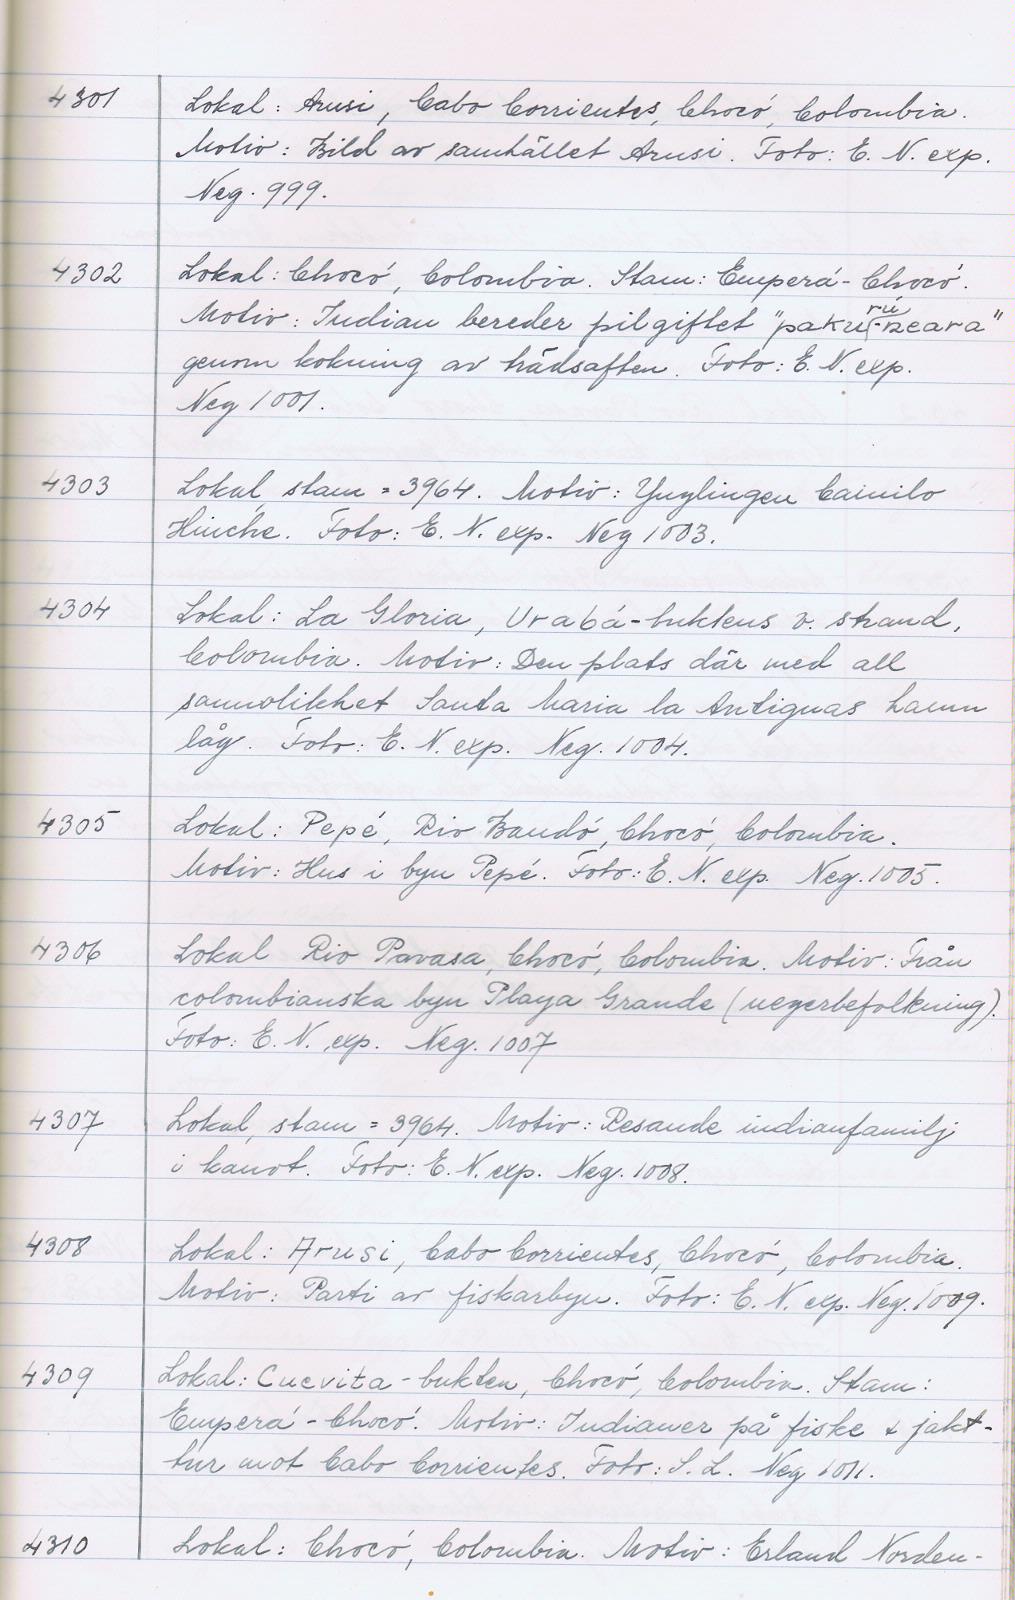 4301 Lokal: Arusi, Cabo Corrientes, Chocó, Colombia.
Motiv: Bild av samhället Arusi. Foto: E. N. exp.
Neg. 999.
4302 Lokal: Chocó, Colombia. Stam: Emperá-Chocó.
rú
Motiv: Indian bereder pilgiftet "pakú-neara"
genom kokning av trädsaften. Foto: E. N. exp.
Neg 1001.
4303 Lokal, stam = 3964. Motiv: Ynglingen Camilo
Hinche. Foto: E. N. exp. Neg 1003.
4304 Lokal: La Gloria, Urabá-buktens v. strand,
Colombia. Motiv: Den plats där med all
sannolikhet Santa Maria la Antiguas hamn
låg. Foto: E. N. exp. Neg. 1004.
4305 Lokal: Pepé, Rio Baudó, Chocó, Colombia.
Motiv: Hus i byn Pepé. Foto: E. N. exp. Neg. 1005.
4306 Lokal Rio Pavasa, Chocó, Colombia. Motiv: Från
colombianska byn Playa Grande (negerbefolkning).
Foto: E. N. exp. Neg. 1007
4307 Lokal, stam = 3964. Motiv: Resande indianfamilj
i kanot. Foto: E. N. exp. Neg. 1008.
4308 Lokal: Arusi, Cabo Corrientes, Chocó, Colombia.
Motiv: Parti av fiskarbyn. Foto: E. N. exp. Neg. 1009.
4309 Lokal: Cuevita-bukten, Chocó, Colombia. Stam:
Emperá-Chocó. Motiv: Indianer på fiske & jakt-
tur mot Cabo Corrientes. Foto: S. L. Neg 1011.
4310 Lokal: Chocó, Colombia. Motiv: Erland Norden-